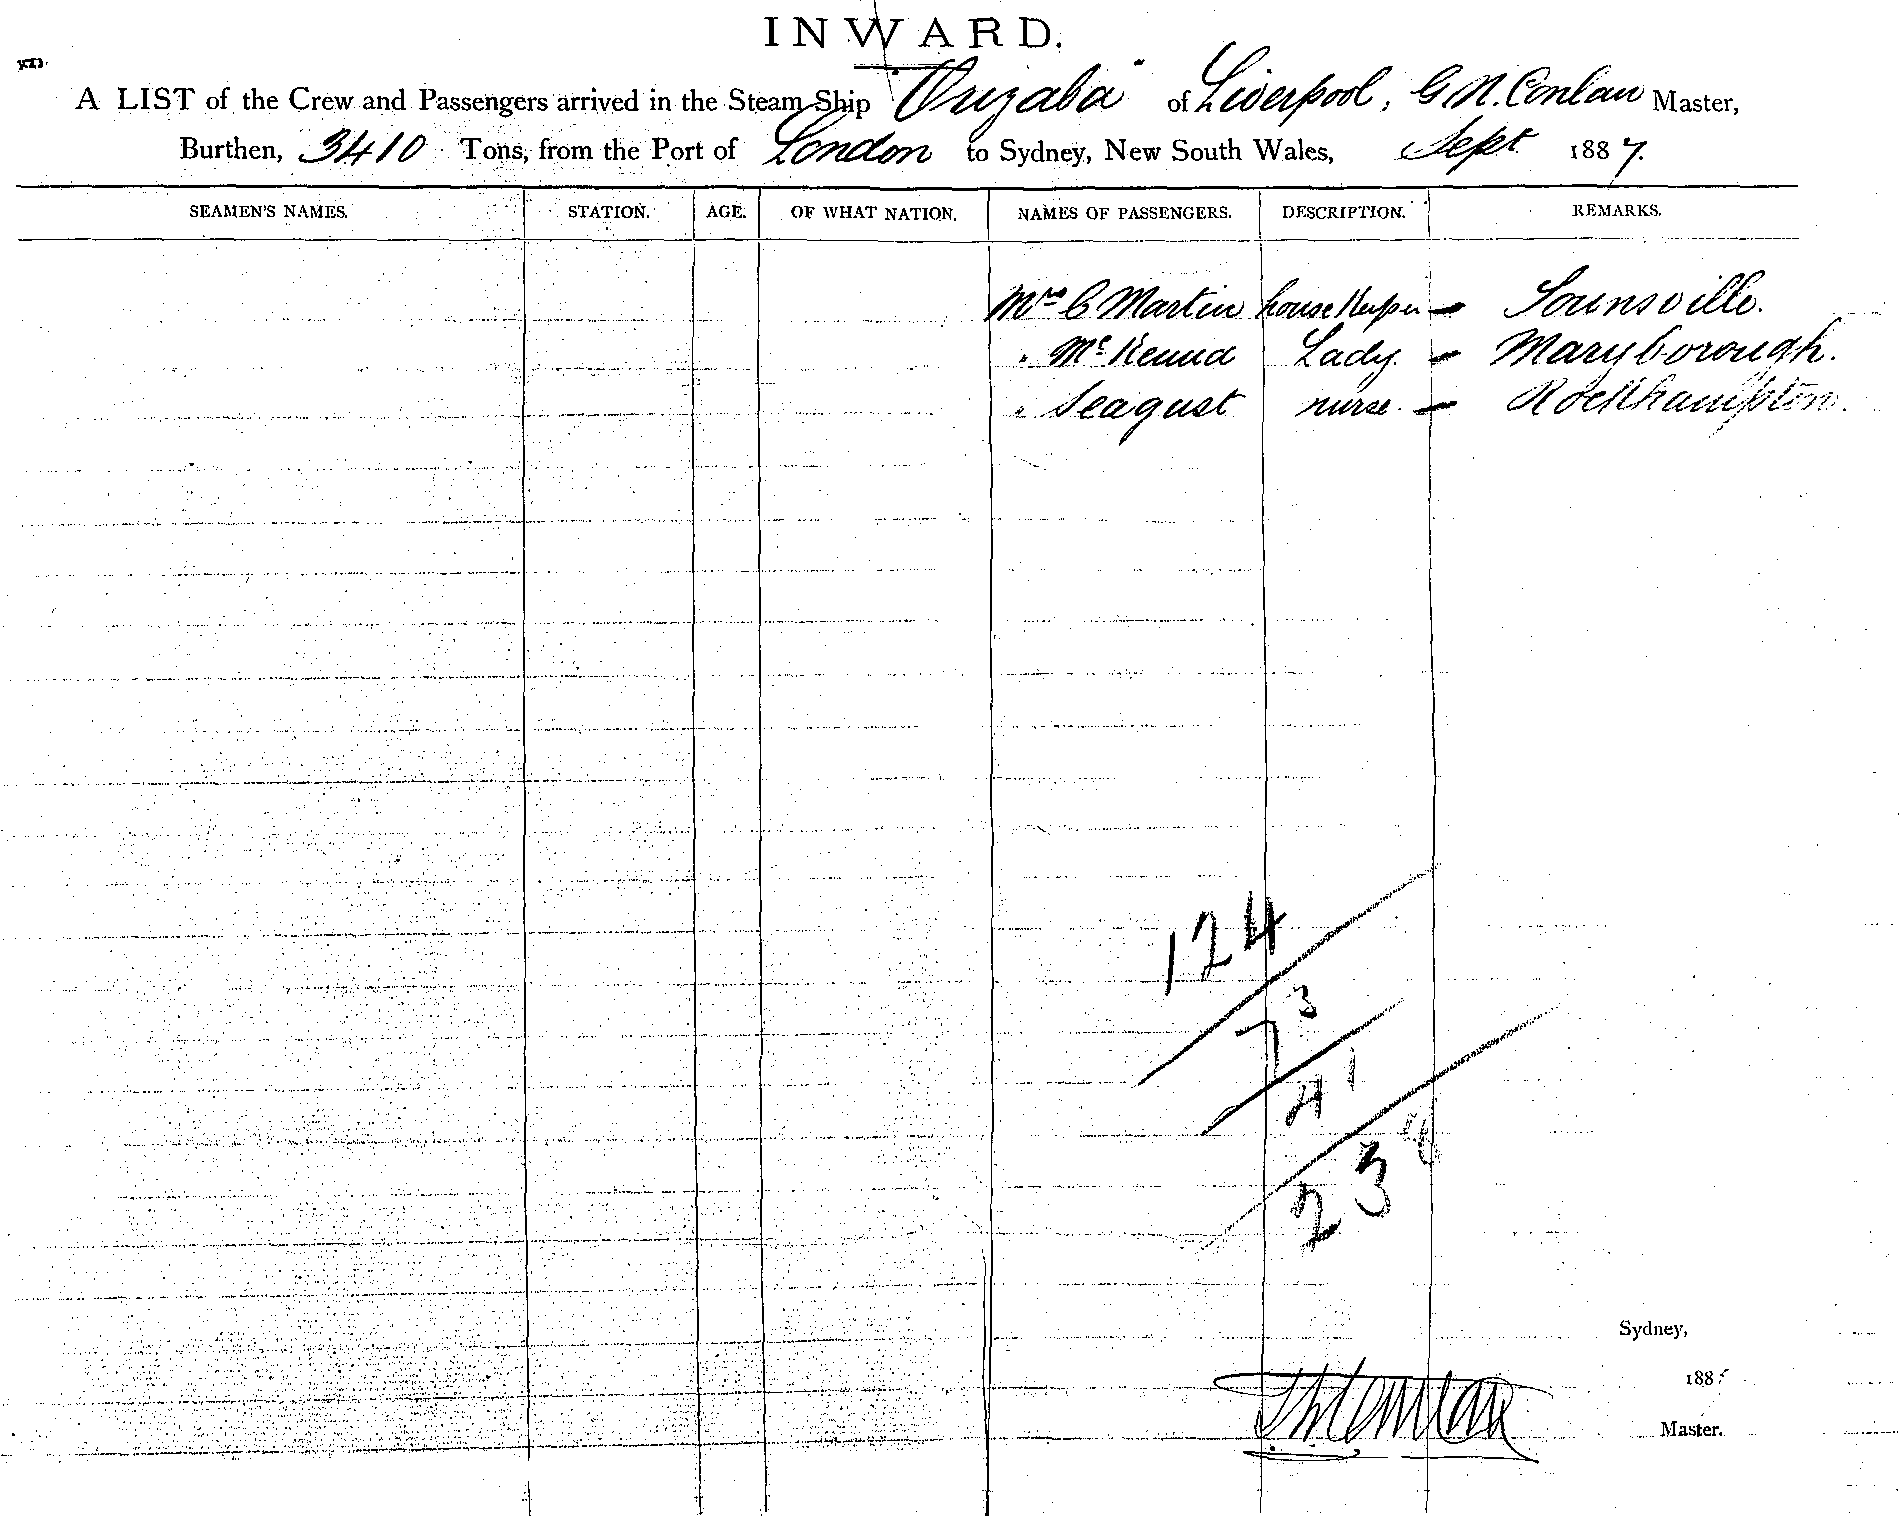 INWARD.
A LIST of the Crew and Passengers arrived in the Steam Ship "Orizaba" of Liverpool, G. N. Conlan Master,
Burthen, 3410 Tons, from the Port of London to Sydney, New South Wales, Sept 1887.
SEAMEN'S NAMES. STATION. AGE. OF WHAT NATION. NAMES OF PASSENGERS. DESCRIPTION. REMARKS.
Mrs C Martin house Keeper - Tounsville.
" Mc Lady. - Maryborough.
" Seagust nurse. - Rockhampton.
124
73
41
23
Sydney,
188
Master.